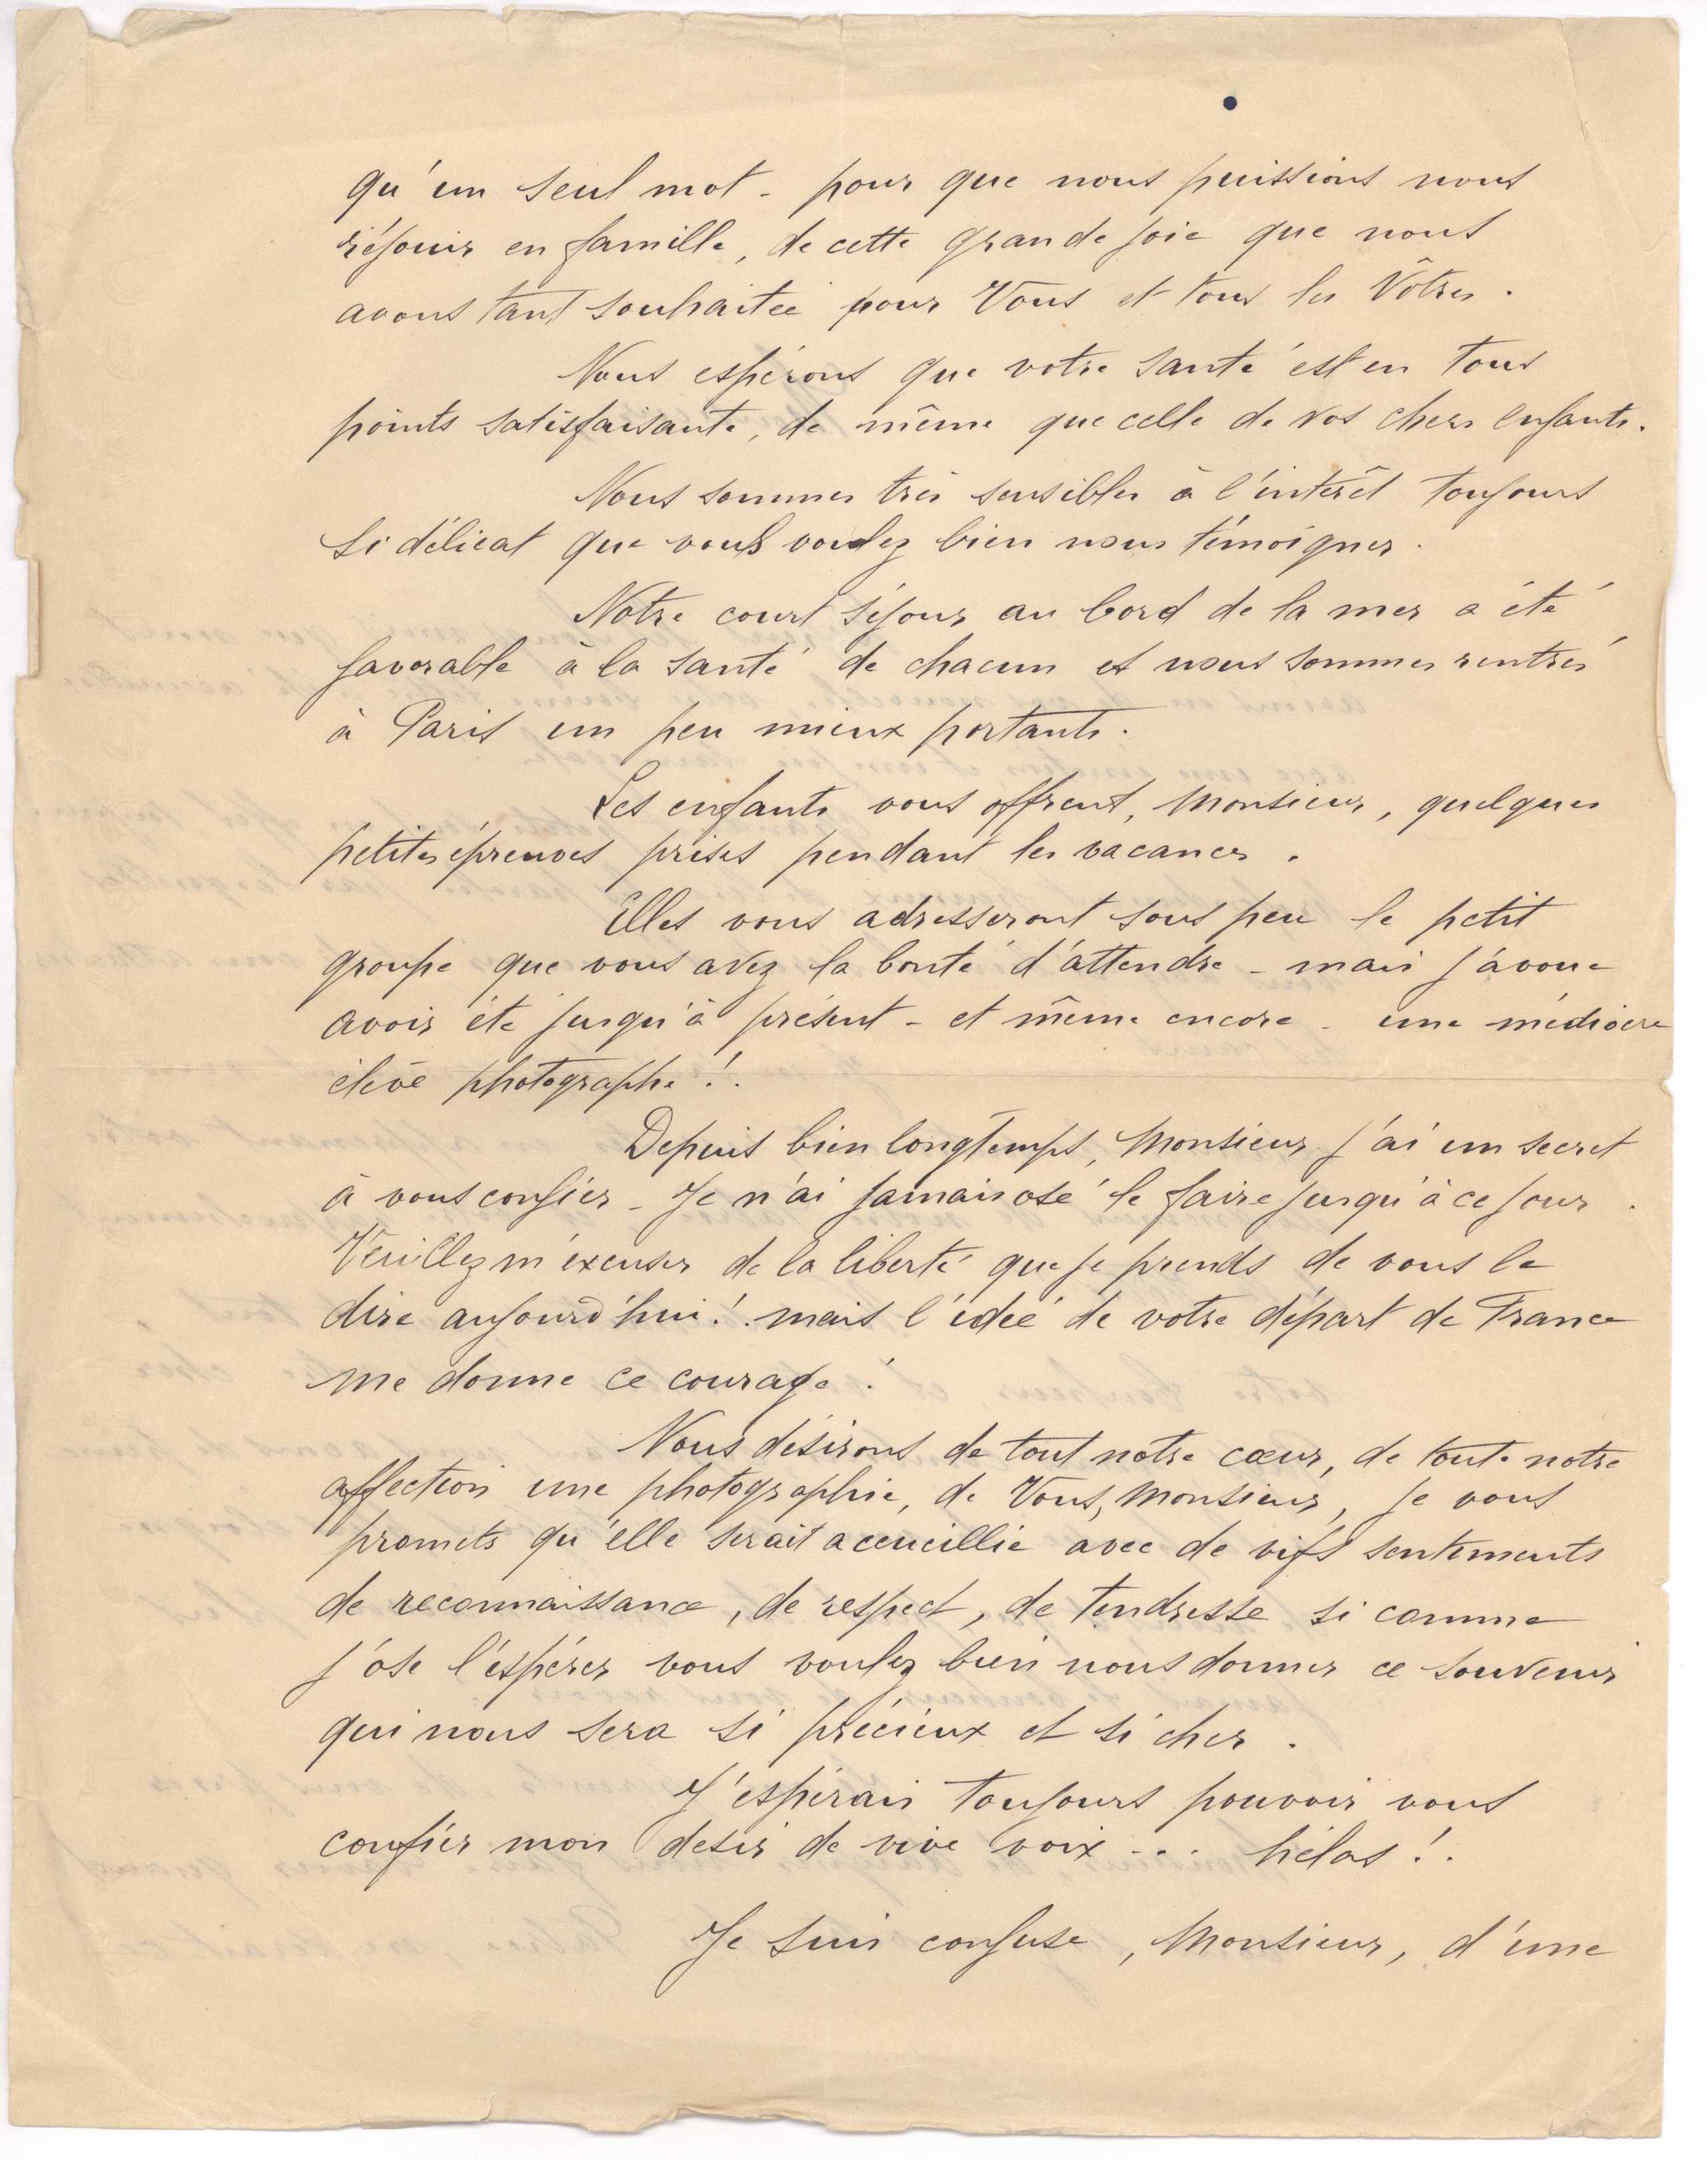 qu'un seul mot - pour que nous puissions nous
réjouir en famille, de cette grande joie que nous
avons tant souhaitée pour Vous et tous les Vôtres.
Nous espérons que votre santé est en tous
points satisfaisante, de même que celle de vos chers enfants.
Nous sommes très sensibles à l'intérêt toujours
si délicat que vous voulez bien nous témoigner.
Notre court séjour au bord de la mer a été
favorable à la santé de chacun et nous sommes rentrés
à Paris un peu mieux portants.
Les enfants vous offrent, Monsieur, quelques
petites épreuves prises pendant les vacances.
Elles vous adresseront sous peu le petit
groupe que vous avez la bonté d'attendre - mais j'avoue
avoir été jusqu'à présent - et même encore - une médiocre
élève photographe !.
Depuis bien longtemps, Monsieur j'ai un secret
à vous confier - Je n'ai jamais osé le faire jusqu'à ce jour.
Veuillez m'excuser de la liberté que je prends de vous le
dire aujourd'hui !. mais l'idée de votre départ de France
me donne ce courage !
Nous désirons de tout notre cœur, de toute notre
affection une photographie, de Vous, Monsieur, je vous
promets qu'elle serait accueillie avec de vifs sentiments
de reconnaissance, de respect, de tendresse si comme
j'ose l'espérer vous voulez bien nous donner ce souvenir
qui nous sera si précieux et si cher.
J'espérais toujours pouvoir vous
confier mon desir de vive voix ... hélas !.
Je suis confuse, Monsieur, d'une